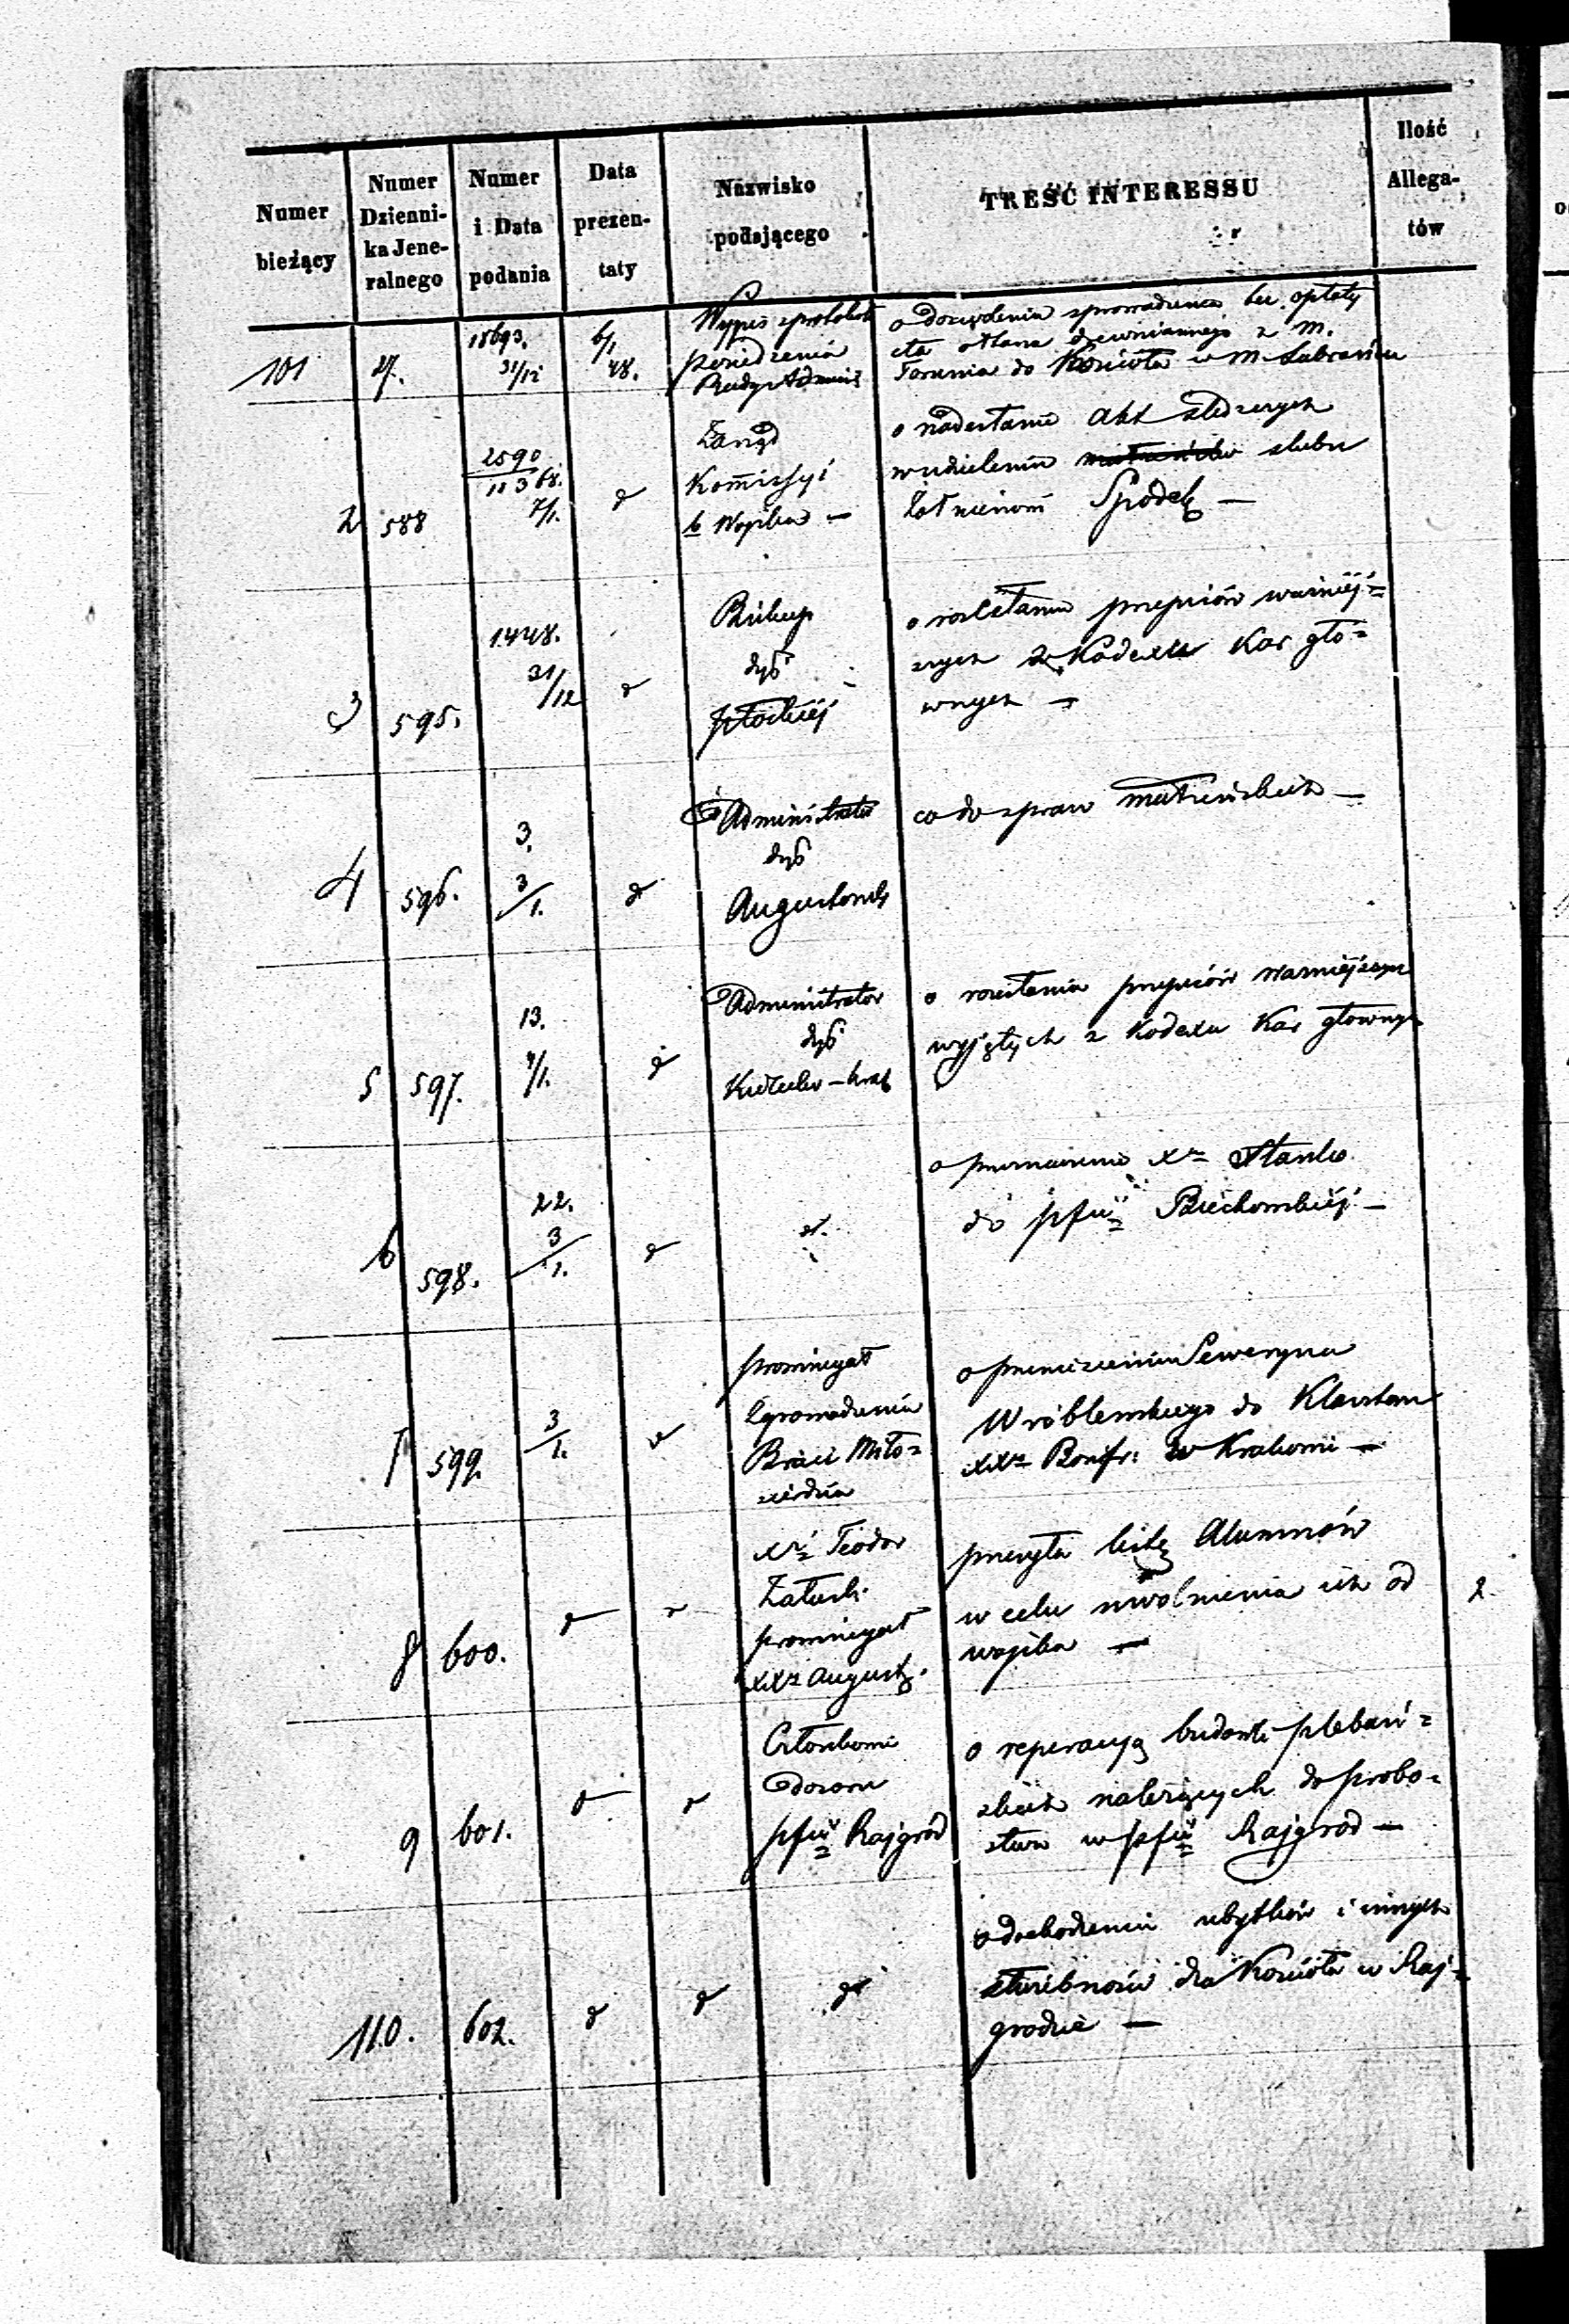 Numer bieżący
Numer Dziennika Jeneralnego
Numer i Data podania
Data prezentaty
Nazwisko podającego
TREŚĆ INTERESSU
Ilość Allegatów
101
27.
18693.
31/12
6/1
48.
Wypis z protokołu
posiedzenia
Rady Adminis
o dozwolenie sprowadzenia bez opłaty
cła ołtarza drewnianego z M.
Torunia do Kościoła w M. Lubrańcu
2
588
2590
113 68.
7/1.
d
Zarząd
Kommissyi
b Wojska —
o nadesłanie akt śledczych
w udzieleniu małżeństw ślubu
Żołnierowi Spodek —
3
595.
1448.
31/12
d
Biskup
dyŝ
płockiej
o rozesłaniu przepisów ważniej=
szych z Kodexu Kar głó=
wnych —
4
596.
3.
3/1.
d
Administrator
dyŝ
Augustowsk
co do spraw małżeńskich —
5
597.
13.
4/1.
d
Administrator
dyŝ
Kielecko-krak
o rozesłania przepisów ważniejszych
wyjętych z Kodexu Kar głownych
6
598.
22.
3/1.
d
d.
o przeznaczenie Xa Stanko
do pfii Biechowskiej —
7
599.
3/1.
d
prowincyał
Zgromadzenia
Braci Miło=
sierdzia
o przeniesieniu Seweryna
Wróblewskiego do Klasztoru
XXw Bonifr: w Krakowie —
8
600.
d
d
Xs Teodor
Załuski
prowincyał
XXw August.
przesyła listę Alumnów
w celu uwolnienia ich od
wojska —
2.
9
601.
d
d
Członkowie
dozoru
pfii Rajgród
o reperacyą budowli plebań=
skich należących do probo=
stwa w pfii Rajgród —
110.
602.
d
d
d
o dochodzeniu ubytków i innych
służebności dla Kościoła w Raj=
grodzie —